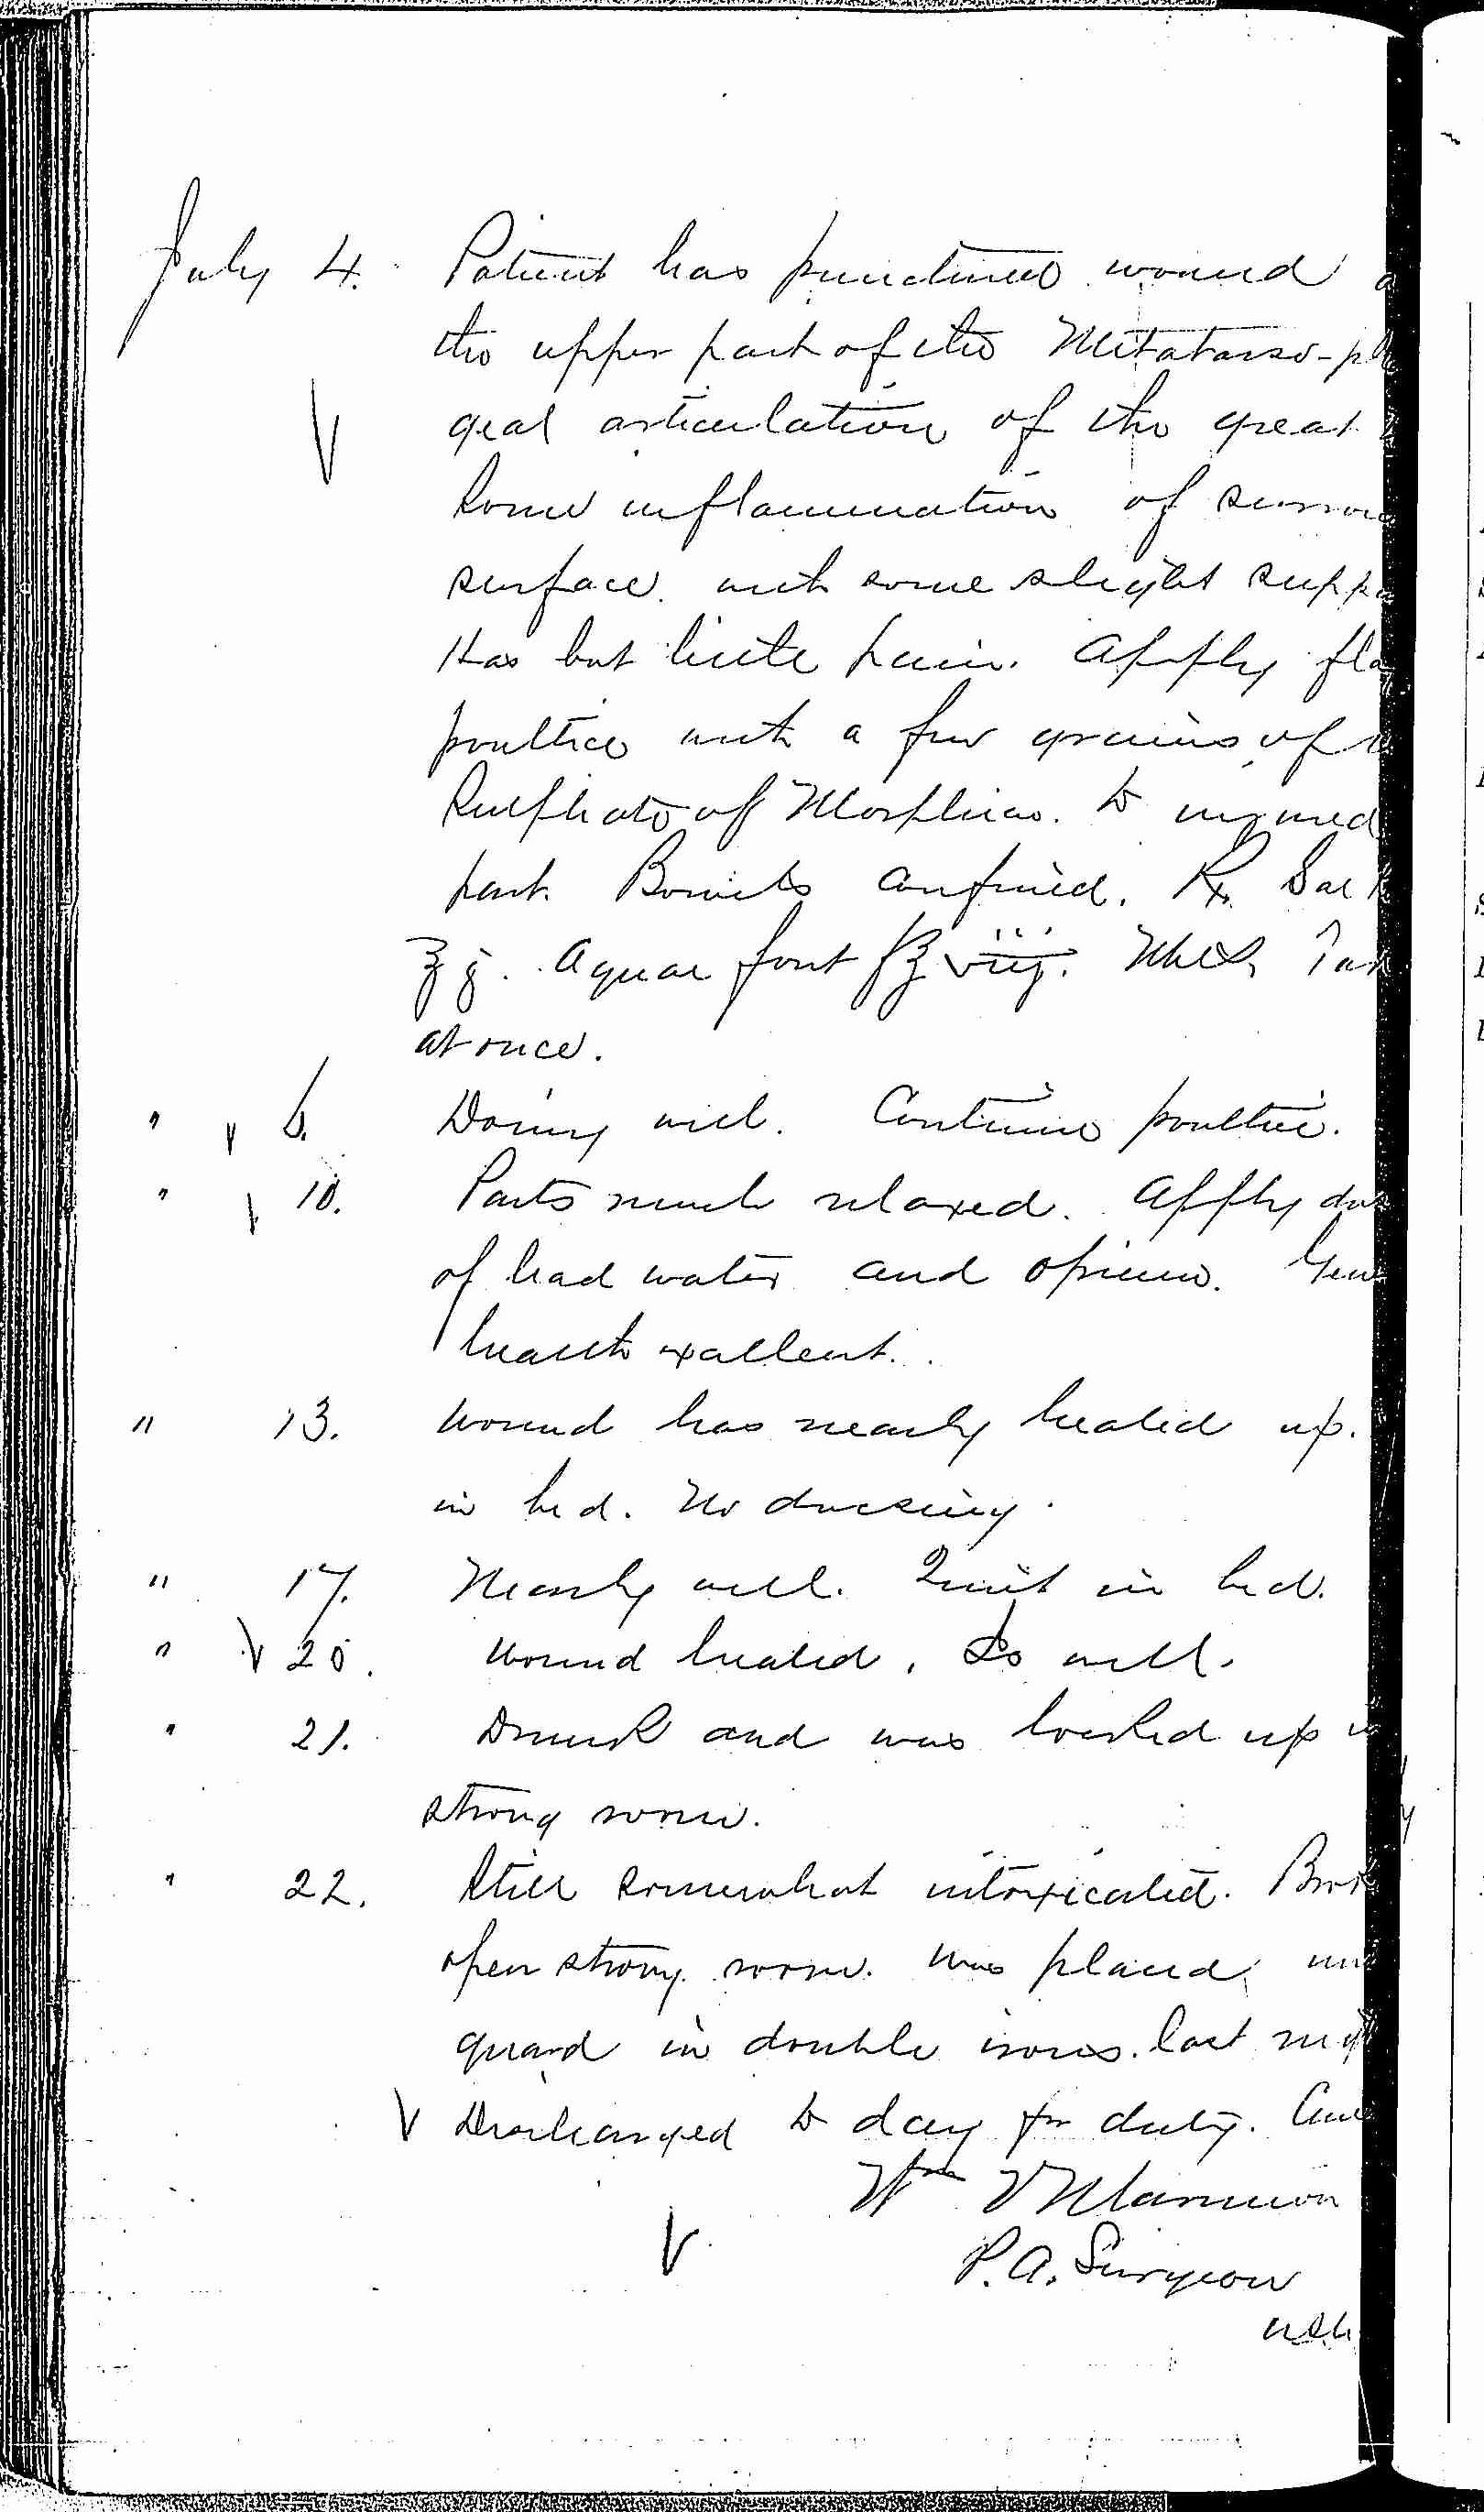 July 4. Patient has punctured wound
the upper part of the Metatarso-pha
geal articulation of the great
Some inflammation of surrou
surface with some slight suppu
Has but little pain. Apply fla
poultice with a few grains of
Sulphate of Morphia. to injured
part. Bowels confined. Rx Sal
℥j. Aquae font f℥viij. Mix Tak
at once.
" 6. Doing well. Continue poultice.
" 10. Parts much relaxed. Apply
of lead water and opium. Gen
health excellent.
" 13. Wound has nearly healed up.
in bed. No dressing.
" 17. Nearly well. Quiet in bed.
" 20. Wound healed. Is well.
" 21. Drunk and was locked up
strong room.
" 22. Still somewhat intoxicated. Brok
open strong room. Was placed un
guard in double irons. last nigh
Discharged to day for duty.
Wm
P. A. Surgeon